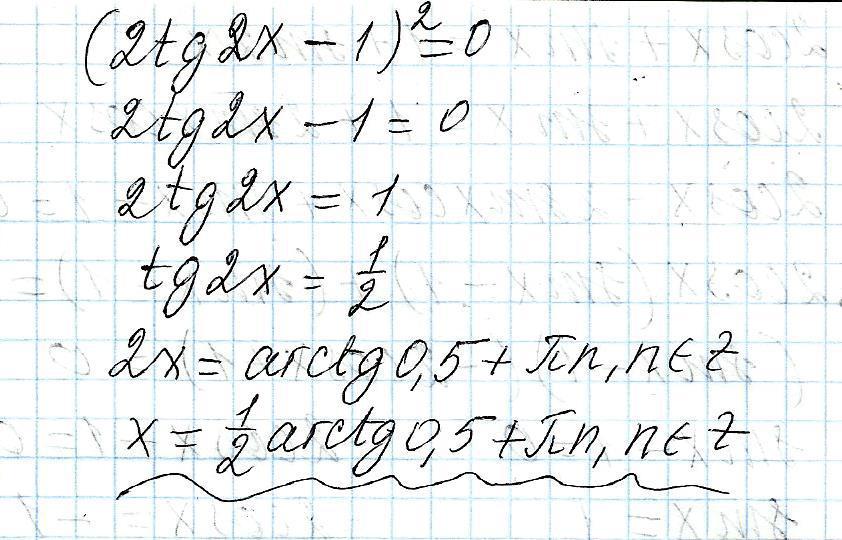 (2tg2x − 1)² = 0
2tg2x − 1 = 0
2tg2x = 1
tg2x = 1/2
2x = arctg0,5 + πn, n ∈ z
x = 1/2 arctg0,5 + πn, n ∈ z